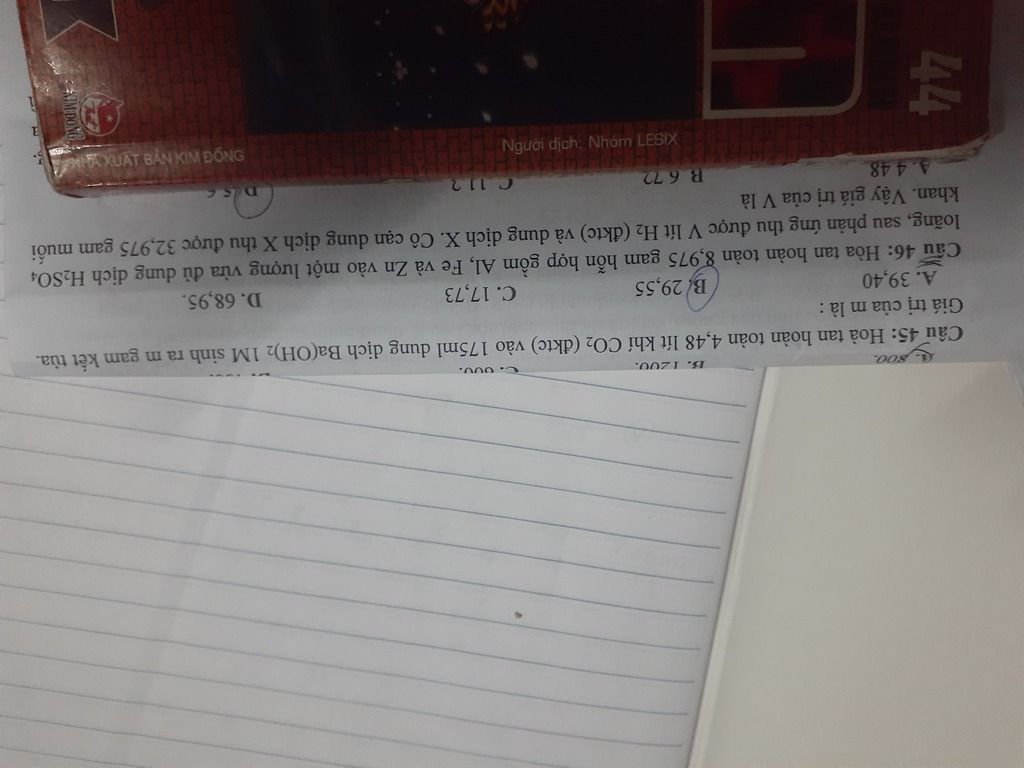 A. 800.
B. 1200.
C. 600.
Câu 45: Hoà tan hoàn toàn 4,48 lít khí CO₂ (đktc) vào 175ml dung dịch Ba(OH)₂ 1M sinh ra m gam kết tủa.
Giá trị của m là :
A. 39,40 B. 29,55 C. 17,73 D. 68,95.
Câu 46: Hòa tan hoàn toàn 8,975 gam hỗn hợp gồm Al, Fe và Zn vào một lượng vừa đủ dung dịch H₂SO₄
loãng, sau phản ứng thu được V lít H₂ (đktc) và dung dịch X. Cô cạn dung dịch X thu được 32,975 gam muối
khan. Vậy giá trị của V là
A. 4,48 B. 6,72 C. 11,2 D. 5,6
NHÀ XUẤT BẢN KIM ĐỒNG
Người dịch: Nhóm LESIX
KIM ĐỒNG
44